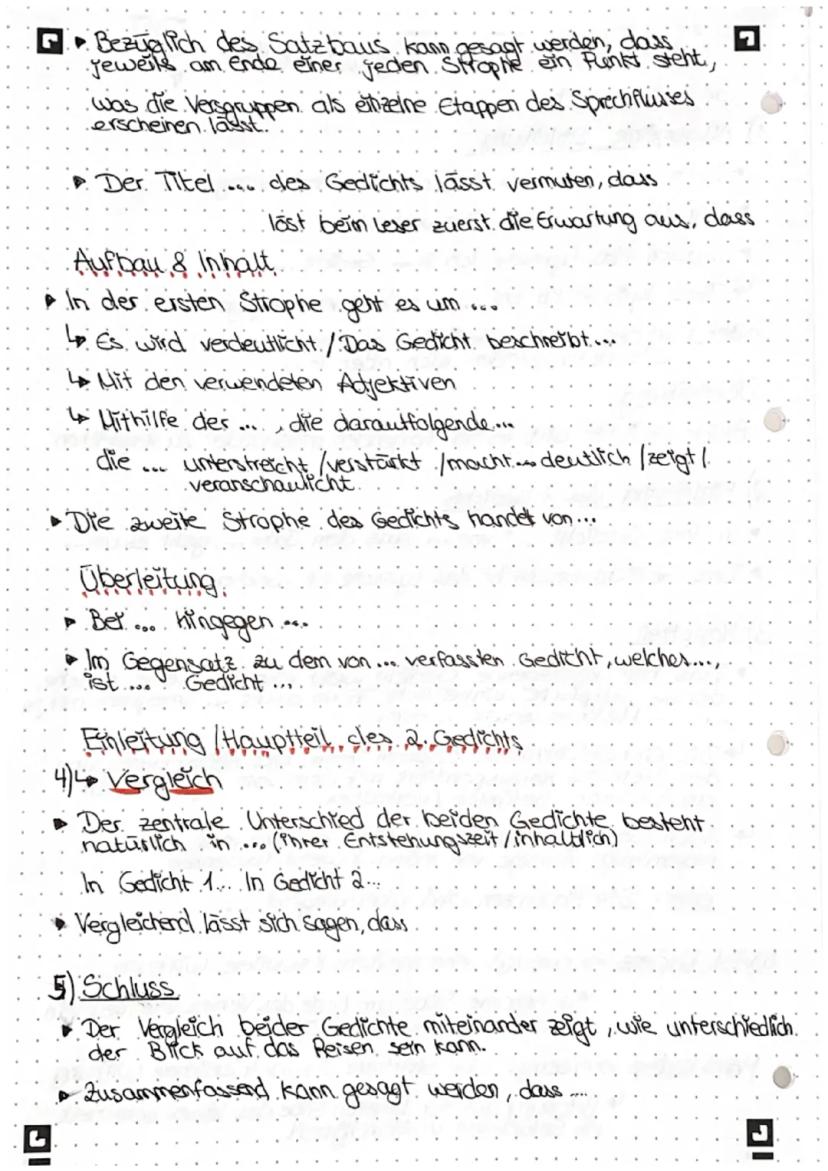 ▸ Bezüglich des Satzbaus kann gesagt werden, dass
jeweils am Ende einer jeden Strophe ein Punkt steht,
was die Versgruppen als einzelne Etappen des Sprechflusses
erscheinen lässt.
▸ Der Titel ... des Gedichts lässt vermuten, dass
löst beim Leser zuerst die Erwartung aus, dass
Aufbau & Inhalt
▸ In der ersten Strophe geht es um ...
↳ Es wird verdeutlicht / Das Gedicht beschreibt...
↳ Mit den verwendeten Adjektiven
↳ Mithilfe der ... , die darauffolgende...
die ... unterstreicht / verstärkt / macht ... deutlich / zeigt /
veranschaulicht
▸ Die zweite Strophe des Gedichts handelt von...
Überleitung:
▸ Bei ... hingegen ...
▸ Im Gegensatz zu dem von ... verfassten Gedicht, welches...,
ist .... Gedicht ...
Einleitung / Hauptteil des 2. Gedichts
4) ↳ Vergleich
▸ Der zentrale Unterschied der beiden Gedichte besteht
natürlich in ... (ihrer Entstehungszeit / inhaltlich)
In Gedicht 1... In Gedicht 2...
▸ Vergleichend lässt sich sagen, dass
5) Schluss
▸ Der Vergleich beider Gedichte miteinander zeigt, wie unterschiedlich
der Blick auf das Reisen sein kann.
▸ Zusammenfassend kann gesagt werden, dass ...